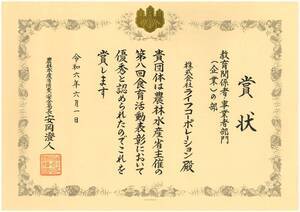 賞状
教育関係者・事業者部門
(企業)の部
株式会社ライフコーポレーション 殿
貴団体は農林水産省主催の
第八回食育活動表彰において
優秀と認められたのでこれを
賞します
令和六年六月一日
農林水産省消費・安全局長 安岡澄人